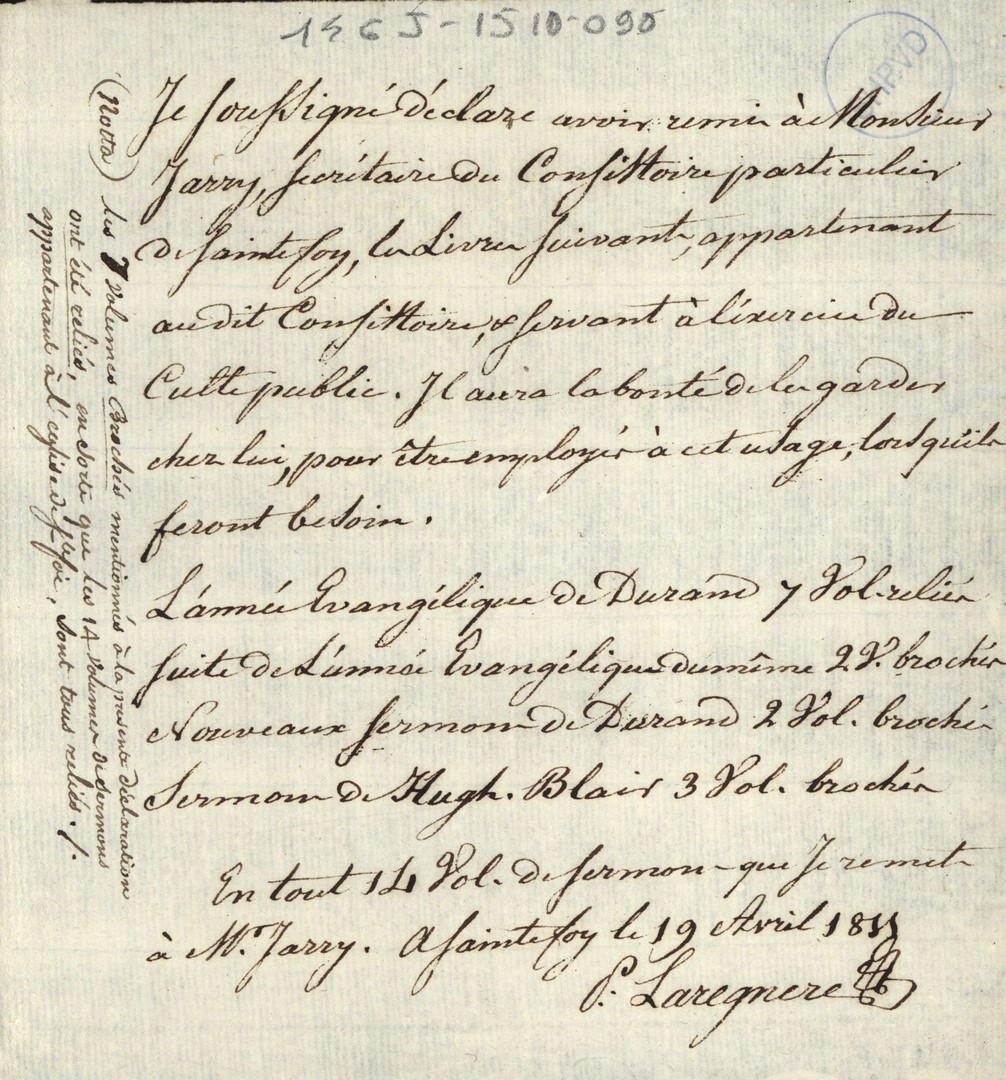 146J-1510-090
HPVD
Je soussigné déclare avoir remis à Monsieur
Jarry, secrétaire du Consistoire particulier
de sainte foy, les Livres suivants, appartenant
audit Consistoire, & servant à l'éxercice du
Culte public. Il aura la bonté de les garder
chez lui, pour être employés à cet usage, lorsqu'ils
feront besoin.
L'année Evangélique de Durand 7 Vol. reliés
suite de L'année Evangélique du même 2 V. brochés
Nouveaux sermons de Durand 2 Vol. brochés
Sermons de Hugh. Blair 3 Vol. brochés
En tout 14 Vol. de sermons que Je remets
à Mr. Jarry. A sainte foy le 19 Avril 1811
P. Laregnere
(Notta) Les 7 Volumes Brochés mentionnés à la présente déclaration
ont été reliés, ensorte que les 14 Volumes de sermons
appartenant à l'église de Ste foi, sont tous reliés./.